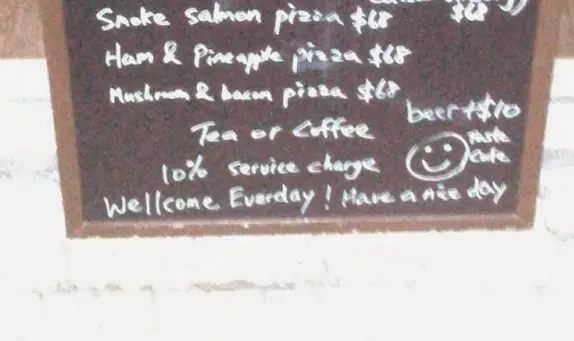 Smoke salmon pizza $68
$68
Ham & Pineapple pizza $68
Mushroom & bacon pizza $68
beer +$10
Tea or Coffee
10% service charge
Wellcome Everday! Have a nice day